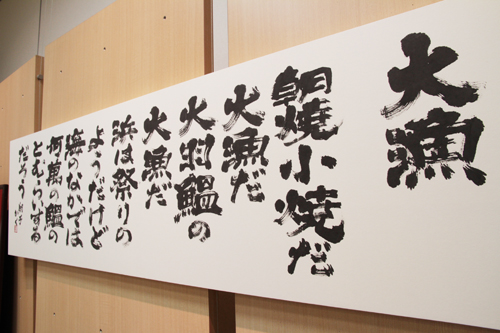 大漁
朝焼小焼だ
大漁だ
大羽鰮の
大漁だ
浜は祭りの
ようだけど
海のなかでは
何萬の鰮の
とむらいする
だろう